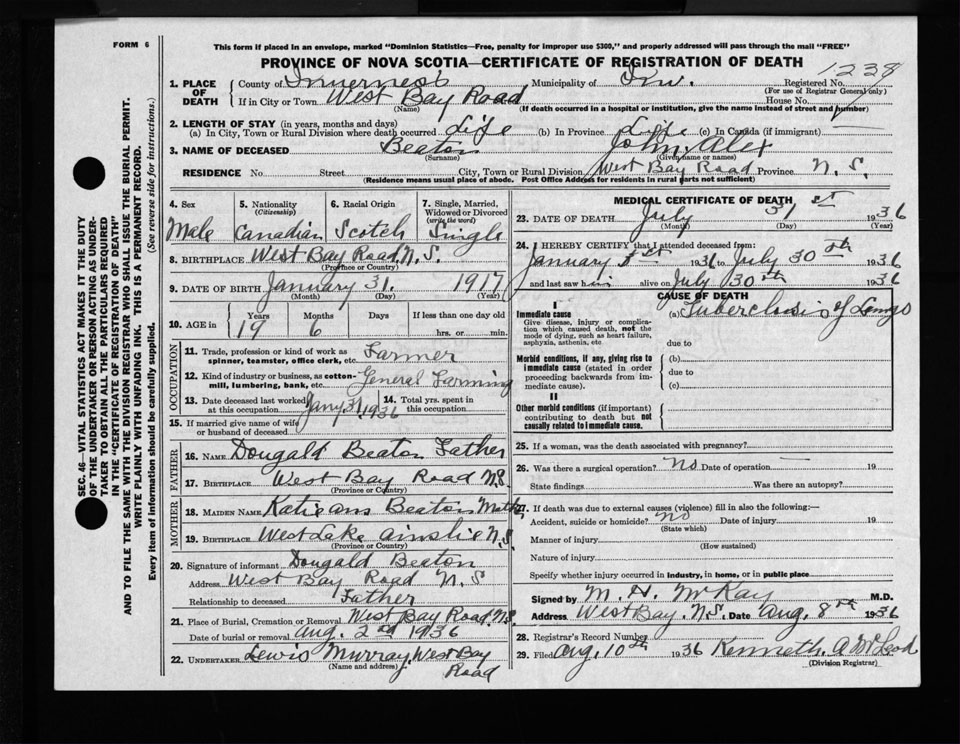 FORM 6
This form if placed in an envelope, marked "Dominion Statistics—Free, penalty for improper use $300," and properly addressed will pass through the mail "FREE"
PROVINCE OF NOVA SCOTIA—CERTIFICATE OF REGISTRATION OF DEATH
1. PLACE OF DEATH County of Inverness Municipality of Inv. Registered No. 1238
(For use of Registrar General only)
If in City or Town West Bay Road House No.
(Name) (If death occurred in a hospital or institution, give the name instead of street and number)
2. LENGTH OF STAY (in years, months and days)
(a) In City, Town or Rural Division where death occurred Life (b) In Province Life (c) In Canada (if immigrant) —
3. NAME OF DECEASED Beaton John Alex
(Surname) (Given name or names)
RESIDENCE No. Street City, Town or Rural Division West Bay Road Province N. S.
(Residence means usual place of abode. Post Office Address for residents in rural parts not sufficient)
4. Sex 5. Nationality (Citizenship) 6. Racial Origin 7. Single, Married, Widowed or Divorced (write the word)
Male Canadian Scotch Single
8. BIRTHPLACE West Bay Road N. S.
(Province or Country)
9. DATE OF BIRTH January 31. 1917
(Month) (Day) (Year)
10. AGE in Years Months Days If less than one day old
19 6 hrs. or min.
OCCUPATION
11. Trade, profession or kind of work as spinner, teamster, office clerk, etc. Farmer
12. Kind of industry or business, as cotton-mill, lumbering, bank, etc. General Farming
13. Date deceased last worked at this occupation Jany 31, 1936 14. Total yrs. spent in this occupation
15. If married give name of wife or husband of deceased
FATHER
16. NAME Dougald Beaton Father
17. BIRTHPLACE West Bay Road N.S.
(Province or Country)
MOTHER
18. MAIDEN NAME Beaton
19. BIRTHPLACE West Lake Ainslie N.S.
(Province or Country)
20. Signature of informant Dougald Beaton
Address West Bay Road N. S
Relationship to deceased Father
21. Place of Burial, Cremation or Removal West Bay Road N.S.
Date of burial or removal Aug. 2nd 1936
22. UNDERTAKER Lewis Murray, West Bay Road
(Name and address)
MEDICAL CERTIFICATE OF DEATH
23. DATE OF DEATH July 31st 1936
(Month) (Day) (Year)
24. I HEREBY CERTIFY that I attended deceased from:
January 1st 1936 to July 30th 1936
and last saw him alive on July 30th 1936
CAUSE OF DEATH
I
Immediate cause (a) Tuberclosis of Lungs
Give disease, injury or complication which caused death, not the mode of dying, such as heart failure, asphyxia, asthenia, etc
due to
Morbid conditions, if any, giving rise to immediate cause (stated in order proceeding backwards from immediate cause). (b)
due to
(c)
II
Other morbid conditions (if important) contributing to death but not causally related to immediate cause.
25. If a woman, was the death associated with pregnancy?
26. Was there a surgical operation? No Date of operation — 19
State findings Was there an autopsy?
27. If death was due to external causes (violence) fill in also the following:—
Accident, suicide or homicide? no Date of injury 19
(State which)
Manner of injury
(How sustained)
Nature of injury
Specify whether injury occurred in industry, in home, or in public place
Signed by M. H. McKay M.D.
Address West Bay. N.S. Date Aug. 8th 1936
28. Registrar's Record Number
29. Filed Aug. 10th 1936 Kenneth A McLeod
(Division Registrar)
SEC. 46—VITAL STATISTICS ACT MAKES IT THE DUTY
OF THE UNDERTAKER OR PERSON ACTING AS UNDER-
TAKER TO OBTAIN ALL THE PARTICULARS REQUIRED
IN THE "CERTIFICATE OF REGISTRATION OF DEATH"
AND TO FILE THE SAME WITH THE DIVISION REGISTRAR WHO SHALL ISSUE THE BURIAL PERMIT.
WRITE PLAINLY WITH UNFADING INK. THIS IS A PERMANENT RECORD.
Every item of information should be carefully supplied. (See reverse side for instructions.)